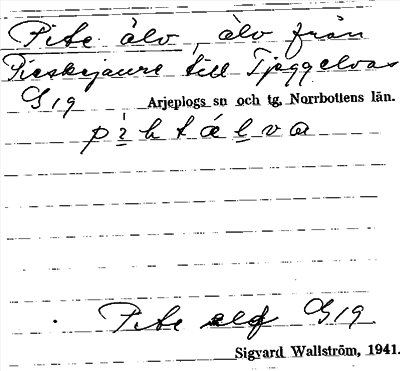 Pite älv, älv från
Pieskejaure till Tjeggelvas
G 19 Arjeplogs sn och tg, Norrbottens län.
pìhtáelva
Pite älf G 19
Sigvard Wallström, 1941.